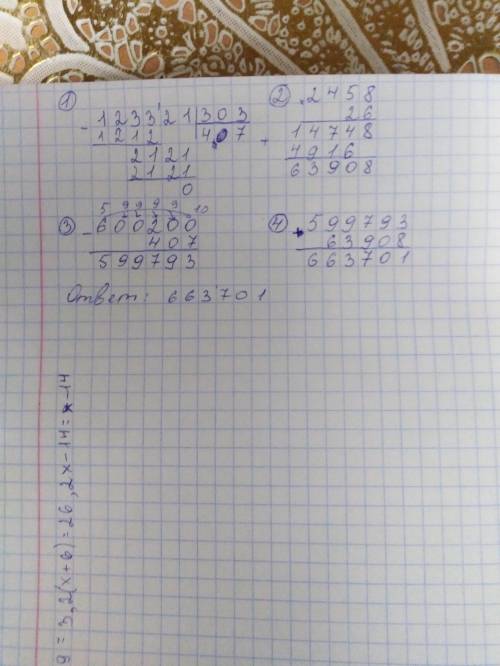 ① ②
- 123321 | 303
1212 | 407
2121
2121
0
. 2458
26
+ 14748
4916
63908
③ ④
5 9 9 9 9 10
- 600200
407
599793
+ 599793
63908
663701
Ответ: 663701
9 = 3, 2(x+6) = 26, 2x-14 = x-14